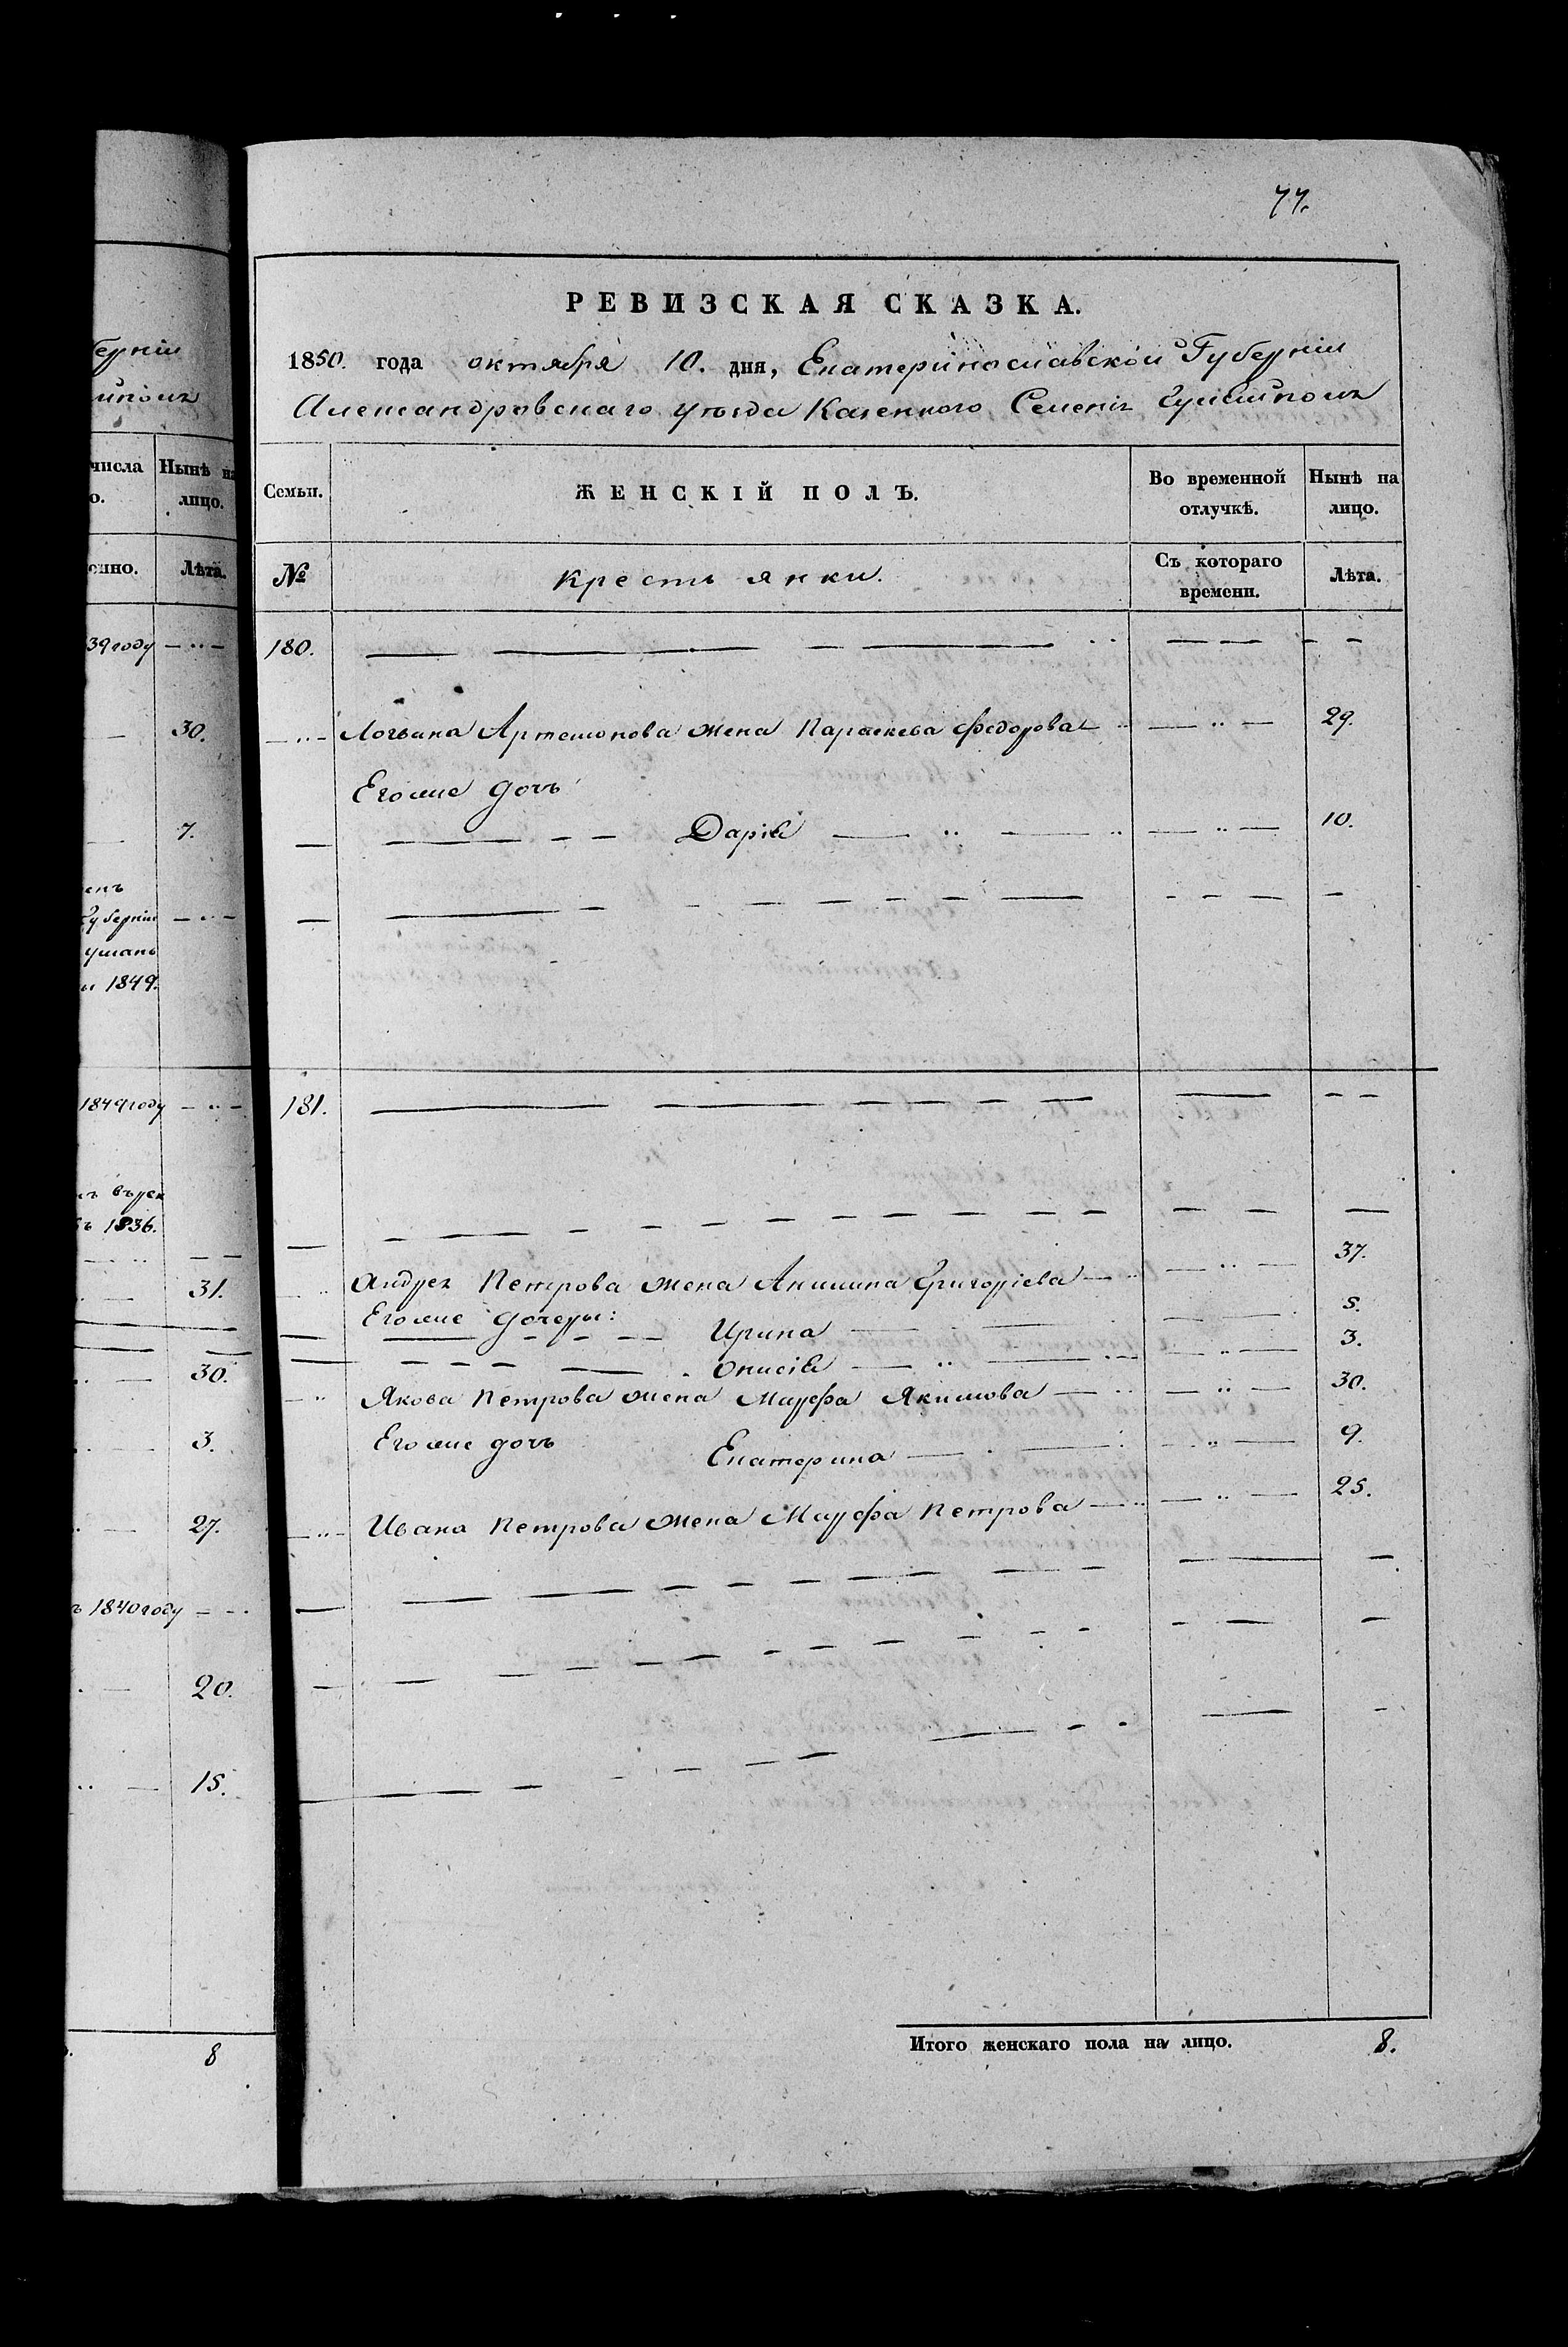 77.
РЕВИЗСКАЯ СКАЗКА.
1850. года октября 10. дня, Екатеринославской Губерніи
Александровскаго уѣзда Казенного Селенія
Семьи.
ЖЕНСКІЙ ПОЛЪ.
Во временной отлучкѣ.
Нынѣ на лицо.
№
Крестьянки.
Съ котораго времени.
Лѣта.
180.
Логвина Артемонова жена Параскева Федорова 29.
Егоже дочь
Дарія 10.
181.
Андрея Петрова жена Акилина Григоріева 37.
Егоже дочеры:
Ирина 5.
Онисія 3.
Якова Петрова жена Марфа Якимова 30.
Егоже дочь
Екатерина 9.
Ивана Петрова жена Марфа Петрова 25.
Итого женскаго пола на лицо. 8.
числа
Нынѣ на
лицо.
Лѣта.
39 году
30.
7.
Губерніи
1849.
1849 году
1836.
31.
30.
3.
27.
1840 году
20.
15.
8